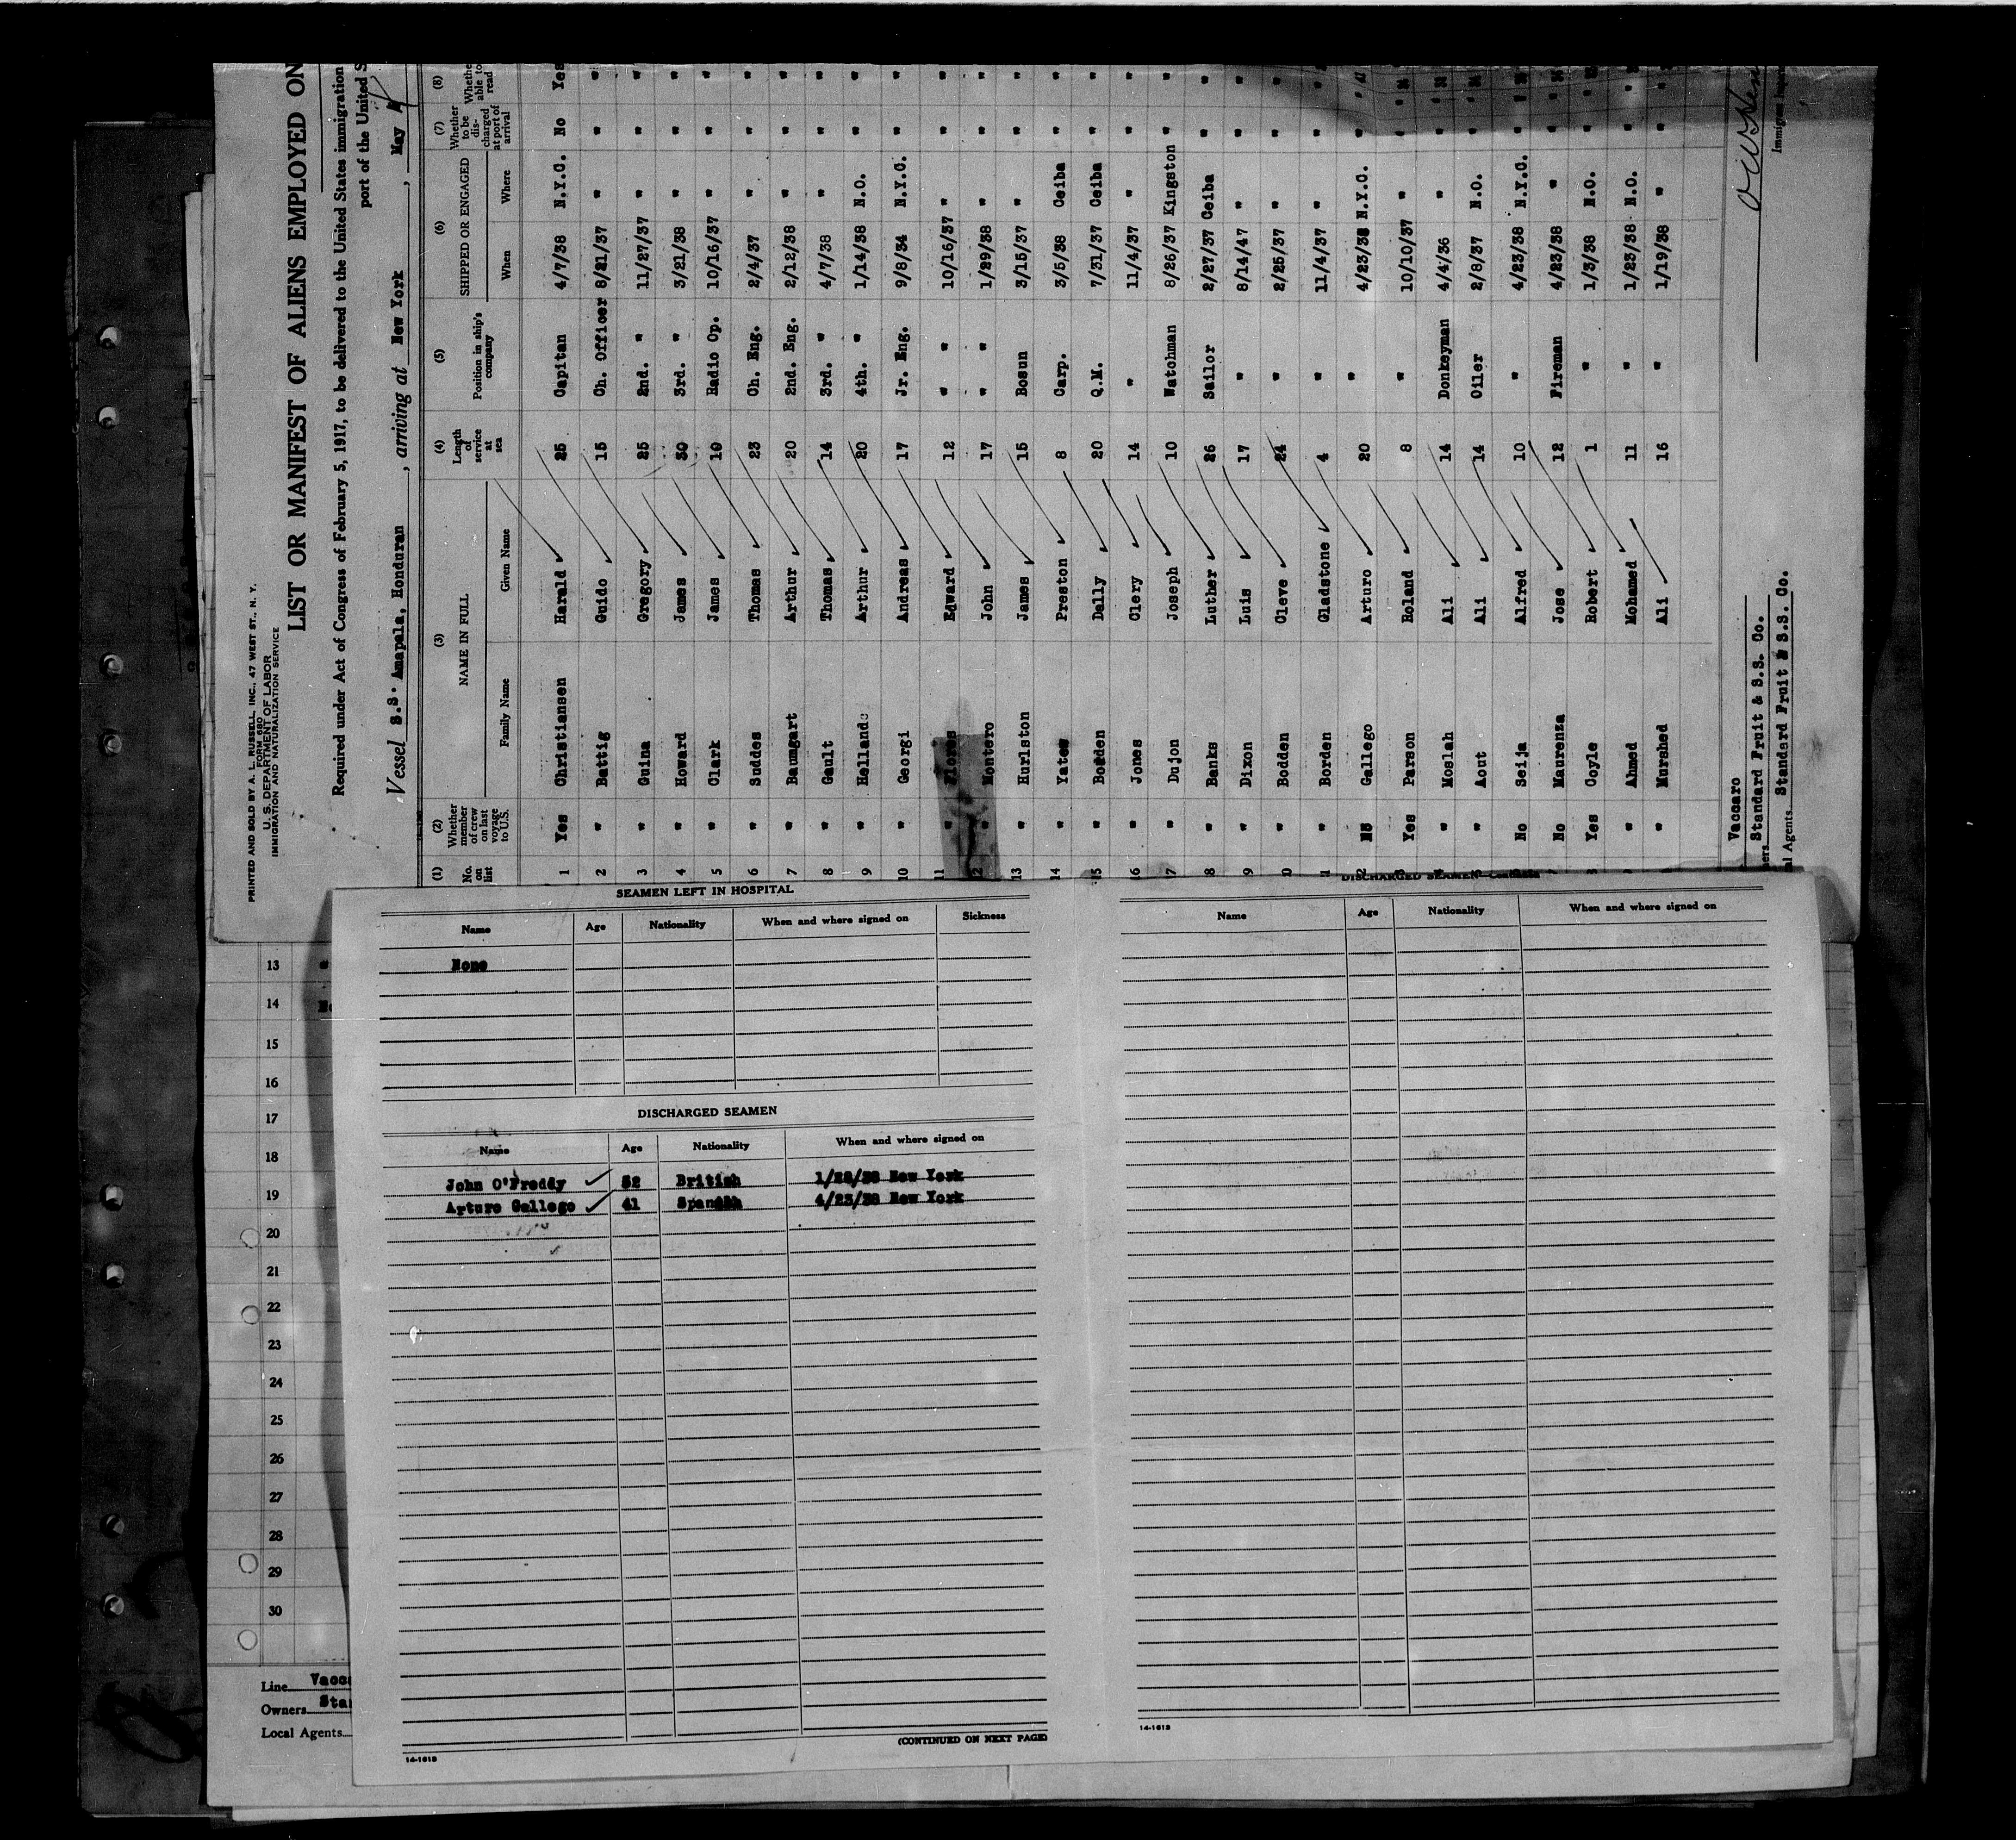 PRINTED AND SOLD BY A. L. RUSSELL, INC., 47 WEST ST., N. Y.
FORM 680
U. S. DEPARTMENT OF LABOR
IMMIGRATION AND NATURALIZATION SERVICE
LIST OR MANIFEST OF ALIENS EMPLOYED ON
Required under Act of Congress of February 5, 1917, to be delivered to the United States immigration
port of the United S
Vessel S.S. Amapala, Honduran, arriving at New York, May
(1) No. on list (2) Whether member of crew on last voyage to U.S. (3) NAME IN FULL Family Name Given Name (4) Length of service at sea (5) Position in ship's company (6) SHIPPED OR ENGAGED When Where (7) Whether to be discharged at port of arrival (8) Whether able to read
1 Yes Christiansen Harald 25 Capitan 4/7/38 N.Y.C. No Yes
2 " Battig Guido 15 Ch. Officer 8/21/37 " " "
3 " Guina Gregory 25 2nd. " 11/27/37 " " "
4 " Howard James 30 3rd. " 3/21/38 " " "
5 " Clark James 19 Radio Op. 10/16/37 " " "
6 " Suddes Thomas 23 Ch. Eng. 2/4/37 " " "
7 " Baumgart Arthur 20 2nd. Eng. 2/12/38 " " "
8 " Gault Thomas 14 3rd. " 4/7/38 " " "
9 " Hellands Arthur 20 4th. " 1/14/38 N.O. " "
10 " Georgi Andreas 17 Jr. Eng. 9/8/34 N.Y.C. " "
11 " Flores Edward 12 " " 10/16/37 " " "
12 " Montero John 17 " " 1/29/38 " " "
13 " Hurlston James 15 Bosun 3/15/37 " " "
14 " Yates Preston 8 Carp. 3/5/38 Ceiba " "
15 " Bodden Dally 20 Q.M. 7/31/37 Ceiba " "
16 " Jones Clery 14 " 11/4/37 " " "
17 " Dujon Joseph 10 Watchman 8/26/37 Kingston " "
8 " Banks Luther 26 Sailor 2/27/37 Ceiba " "
9 " Dixon Luis 17 " 8/14/47 " " "
0 " Bodden Cleve 24 " 2/25/37 " " "
1 " Borden Gladstone 4 " 11/4/37 " " "
2 No Gallego Arturo 20 " 4/23/38 N.Y.C. " "
Yes Parson Roland 8 " 10/10/37 " " "
" Moslah Ali 14 Donkeyman 4/4/36 " " "
" Aout Ali 14 Oiler 2/8/37 N.O. " "
No Seija Alfred 10 " 4/23/38 N.Y.C. " "
No Maurenza Jose 12 Fireman 4/23/38 " " "
Yes Coyle Robert 1 " 1/3/38 N.O. " "
" Ahmed Mohamed 11 " 1/23/38 N.O. " "
" Murshed Ali 16 " 1/19/38 " " "
Vaccaro
ers Standard Fruit & S.S. Co.
al Agents Standard Fruit & S.S. Co.
Immigrant Inspe
SEAMEN LEFT IN HOSPITAL
Name Age Nationality When and where signed on Sickness
None
DISCHARGED SEAMEN
Name Age Nationality When and where signed on
John O'Freddy 52 British 1/28/38 New York
Arturo Gallego 41 Spanish 4/23/38 New York
(CONTINUED ON NEXT PAGE)
14-1613
DISCHARGED SEAMEN—Continued
Name Age Nationality When and where signed on
14-1613
13 "
14 No
15
16
17
18
19
20
21
22
23
24
25
26
27
28
29
30
Line Vacca
Owners Stan
Local Agents